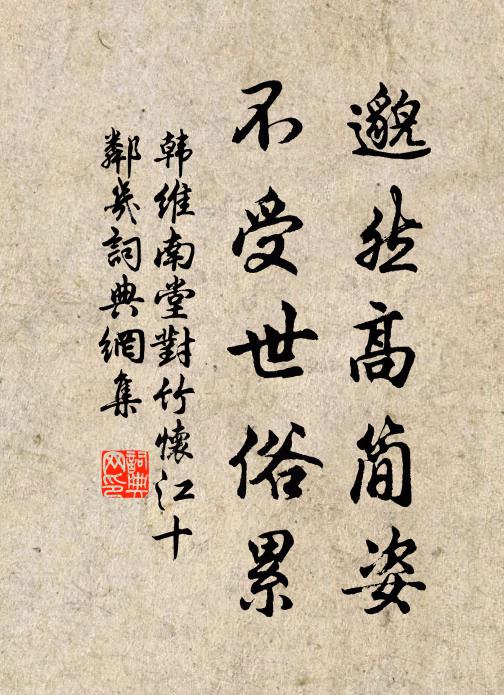 邈然高简姿
不受世俗累
韩维南堂對竹懷江十
鄰幾詞典網集
詞典
网印